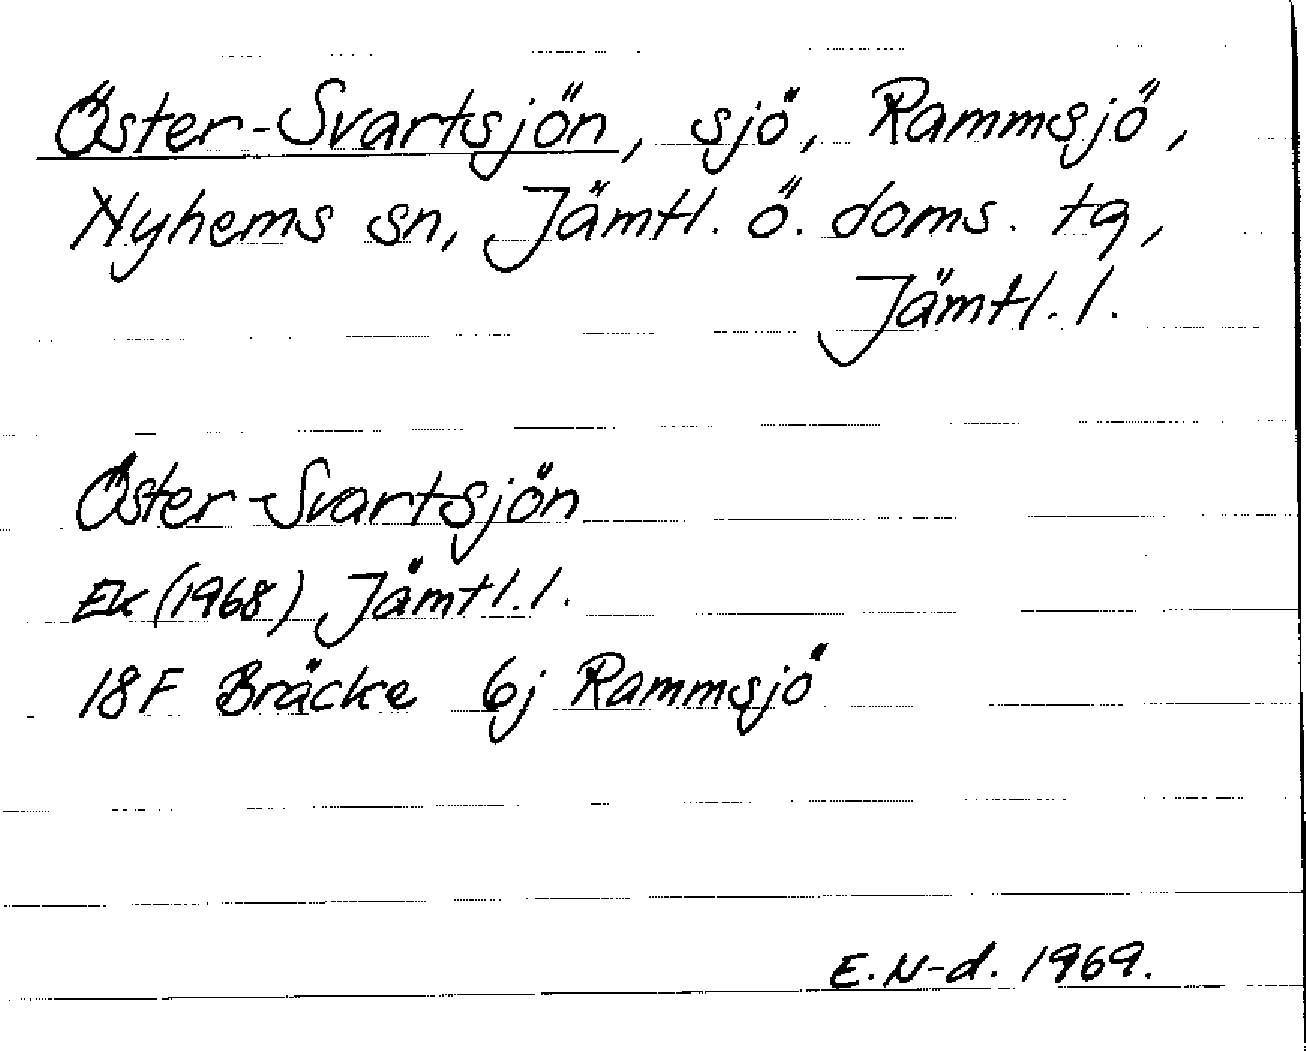 Öster-Svartsjön, sjö, Rammsjö,
Nyhems sn, Jämtl. ö. doms. tg,
Jämtl. l.
Öster-Svartsjön
Ek (1968) Jämtl. l.
18F Bräcke 6j Rammsjö
E. N-d. 1969.